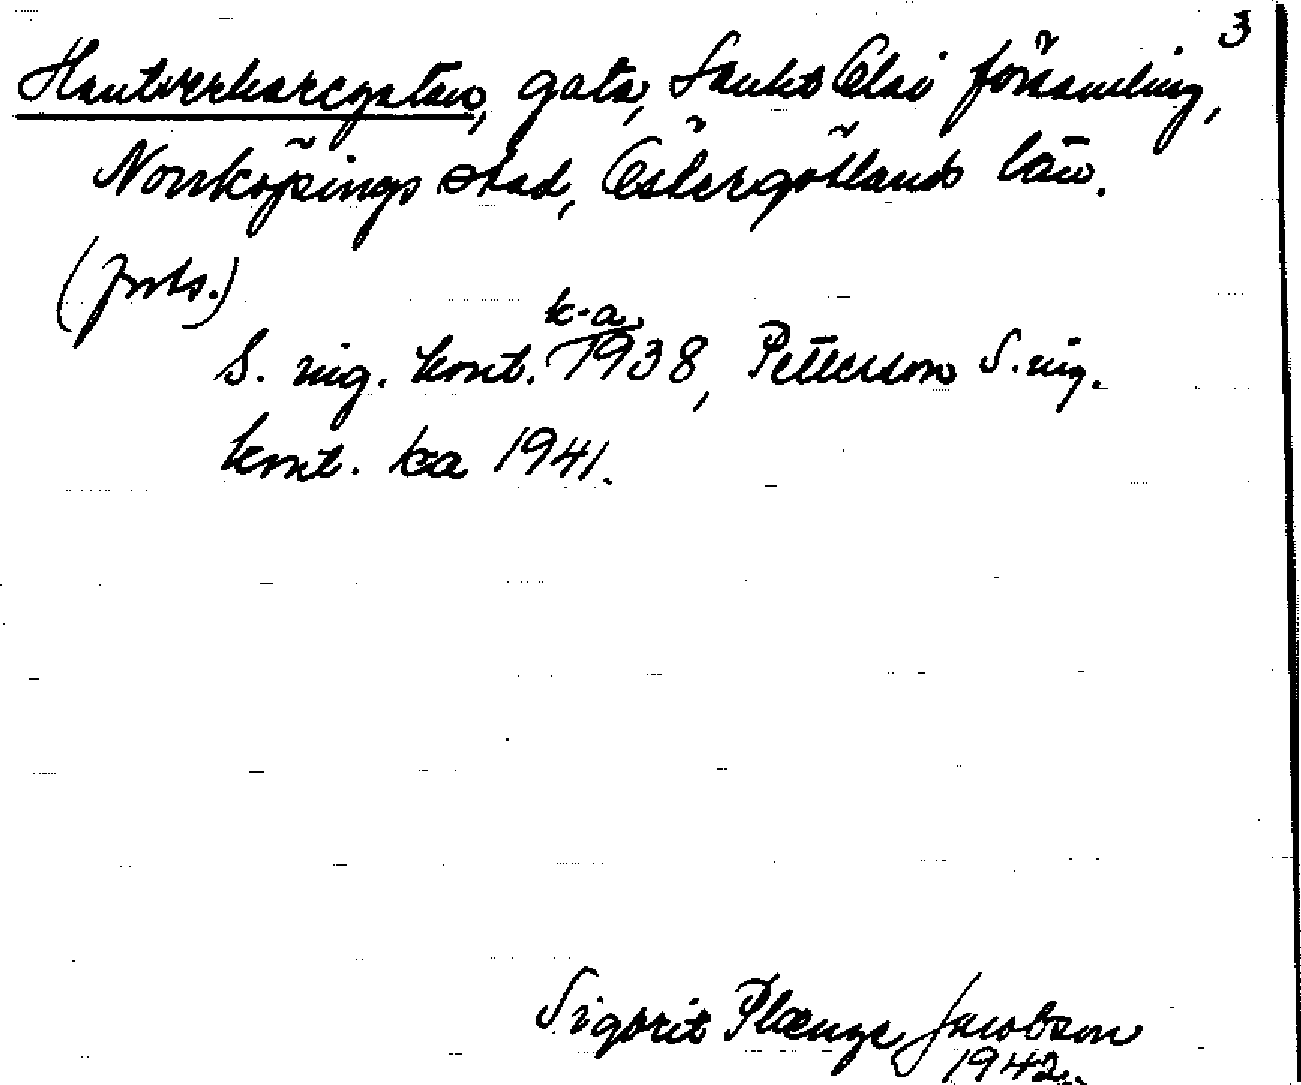 3
Hantverkaregatan, gata, Sankt Olai församling,
Norrköpings stad, Östergötlands län.
(forts.)
k-a
S. ing. kont. 1938, Petterson S. ing.
kont. ka 1941.
Sigbrit Plænge Jacobson
1942.